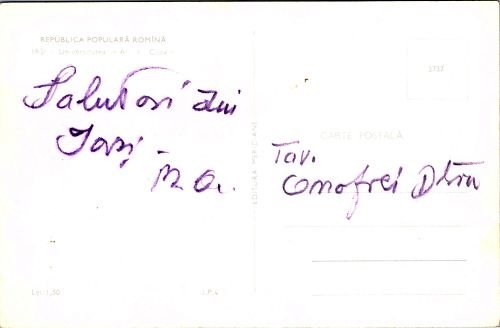 REPUBLICA POPULARĂ ROMÎNĂ
IAȘI - Universitatea "Al. I. Cuza"
Salutări din
Iași
Tov.
Onofrei
3737
CARTE POȘTALĂ
EDITURA MERIDIANE
Lei 1,50
I.P.4